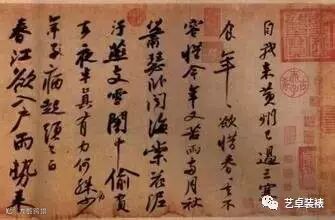 自我来黄州已過三寒
食年〻欲惜春〻去不
容惜今年又苦雨兩月秋
蕭瑟卧聞海棠花泥
汙燕支雪闇中偷負
去夜半真有力何殊少
年子病起頭已白
春江欲入户雨勢来
艺卓装裱